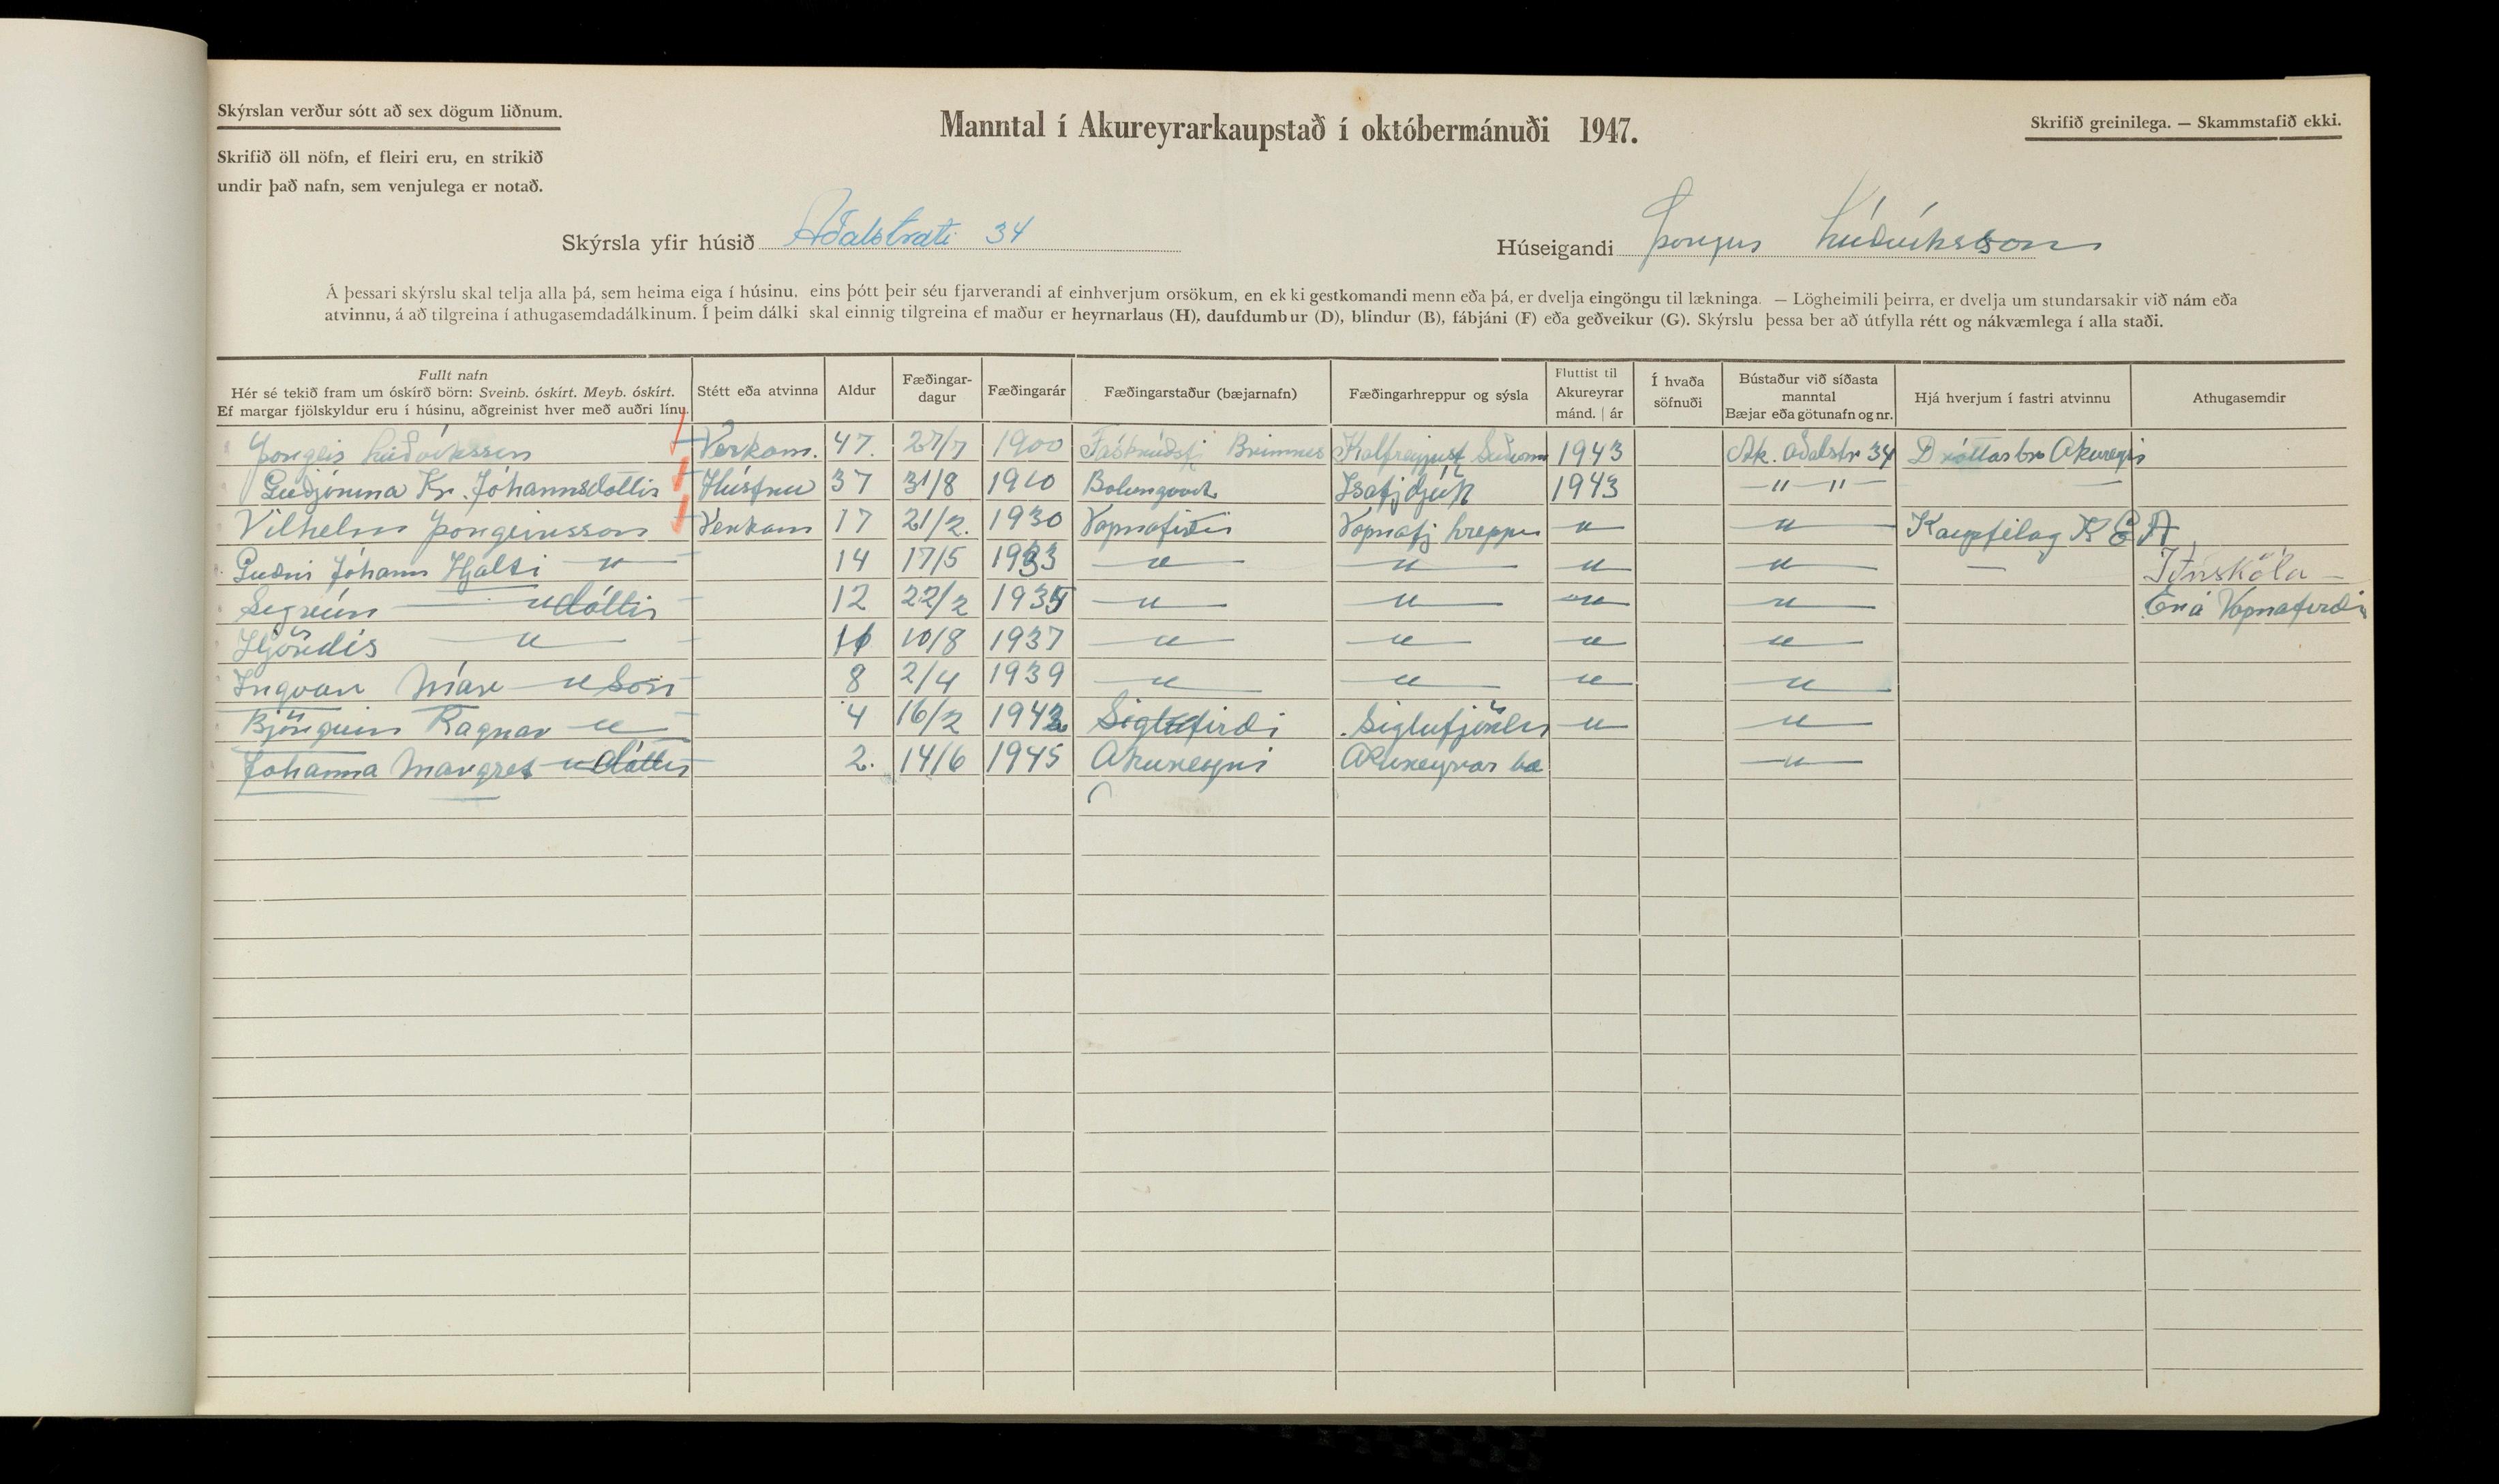 Skýrslan verður sótt að sex dögum liðnum.
Skrifið öll nöfn, ef fleiri eru, en strikið
undir það nafn, sem venjulega er notað.
Manntal í Akureyrarkaupstað í októbermánuði 1947.
Skrifið greinilega. — Skammstafið ekki.
Skýrsla yfir húsið Aðalstræti 34
Húseigandi Þorgeir Lúðvíksson
Á þessari skýrslu skal telja alla þá, sem heima eiga í húsinu, eins þótt þeir séu fjarverandi af einhverjum orsökum, en ekki gestkomandi menn eða þá, er dvelja eingöngu til lækninga. — Lögheimili þeirra, er dvelja um stundarsakir við nám eða
atvinnu, á að tilgreina í athugasemdadálkinum. Í þeim dálki skal einnig tilgreina ef maður er heyrnarlaus (H), daufdumbur (D), blindur (B), fábjáni (F) eða geðveikur (G). Skýrslu þessa ber að útfylla rétt og nákvæmlega í alla staði.
Fullt nafn
Hér sé tekið fram um óskírð börn: Sveinb. óskírt. Meyb. óskírt.
Ef margar fjölskyldur eru í húsinu, aðgreinist hver með auðri línu.
Stétt eða atvinna
Aldur
Fæðingar-
dagur
Fæðingarár
Fæðingarstaður (bæjarnafn)
Fæðingarhreppur og sýsla
Fluttist til
Akureyrar
mánd. | ár
Í hvaða
söfnuði
Bústaður við síðasta
manntal
Bæjar eða götunafn og nr.
Hjá hverjum í fastri atvinnu
Athugasemdir
Þorgeir Lúðvíksson Verkam. 47. 27/7 1900 Fáskrúðsfj Brimnes 1943 Ak. Aðalstr 34 Dráttarbr Akureyri
Guðjónína Kr. Jóhannsdóttir Húsfrú 37 31/8 1910 Bolungavík Ísafjdjúp 1943 — " — " — —
Vilhelm Þorgeirsson Verkam 17 21/2. 1930 Vopnafirði Vopnafj hreppur — " — — " — Kaupfélag K E A
Guðni Jóhann Hjalti — " — 14 17/5 1933 — " — — " — — " — — " — — Iðnskóla —
Sigrún — " dóttir 12 22/2 1935 — " — — " — — " — — " — Er á Vopnafirði
Hjördís — " — 10/8 1937 — " — — " — — " — — " —
Ingvar Már — " son 8 2/4 1939 — " — — " — — " — — " —
Björgvin Ragnar — " — 4 16/2 Siglufirði Siglufjörður — " — — " —
Jóhanna Margret — " dóttir 2. 14/6 1945 Akureyri Akureyrar bæ — " —